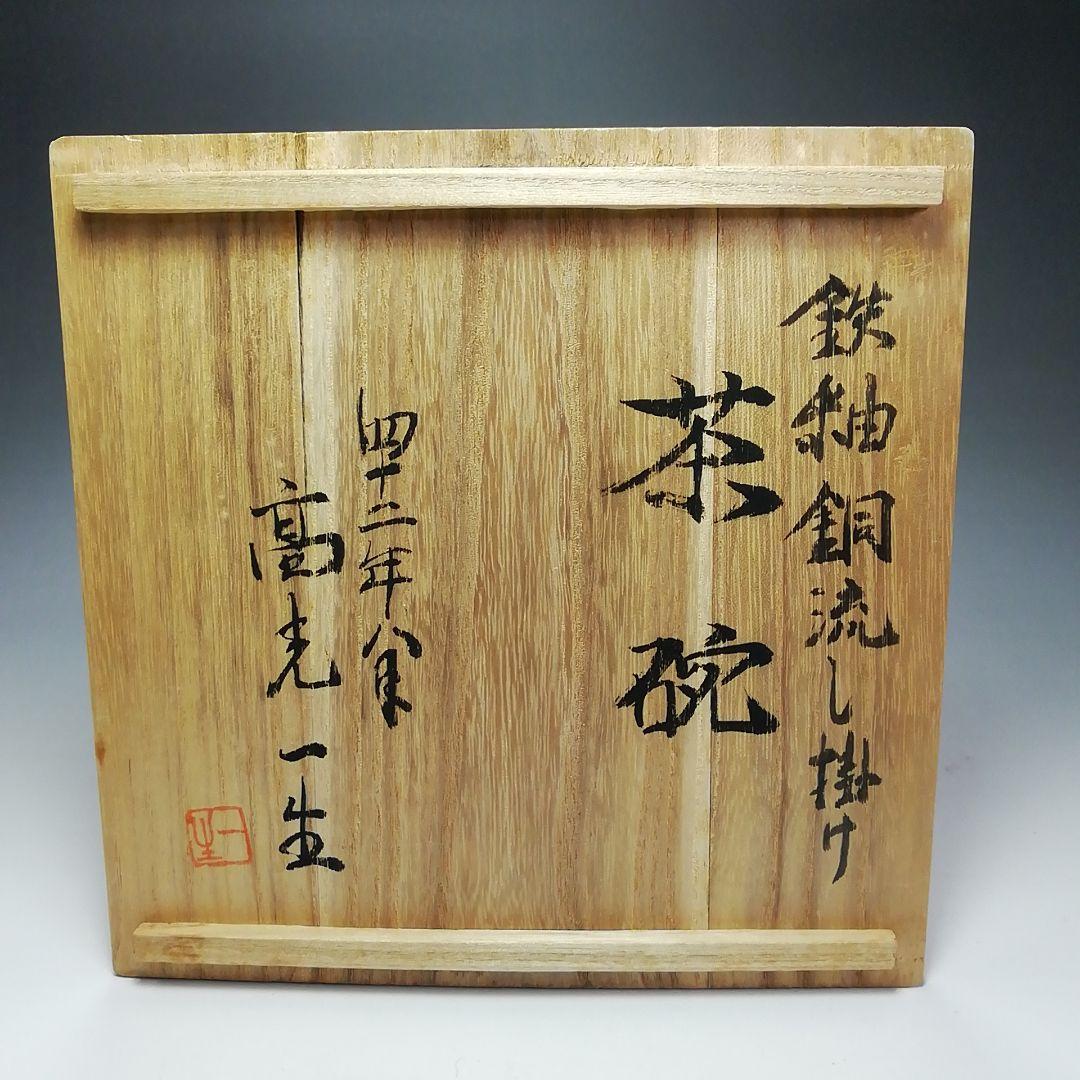 鉄釉銅流し掛け
茶碗
四十二年八月
高光一生
一生